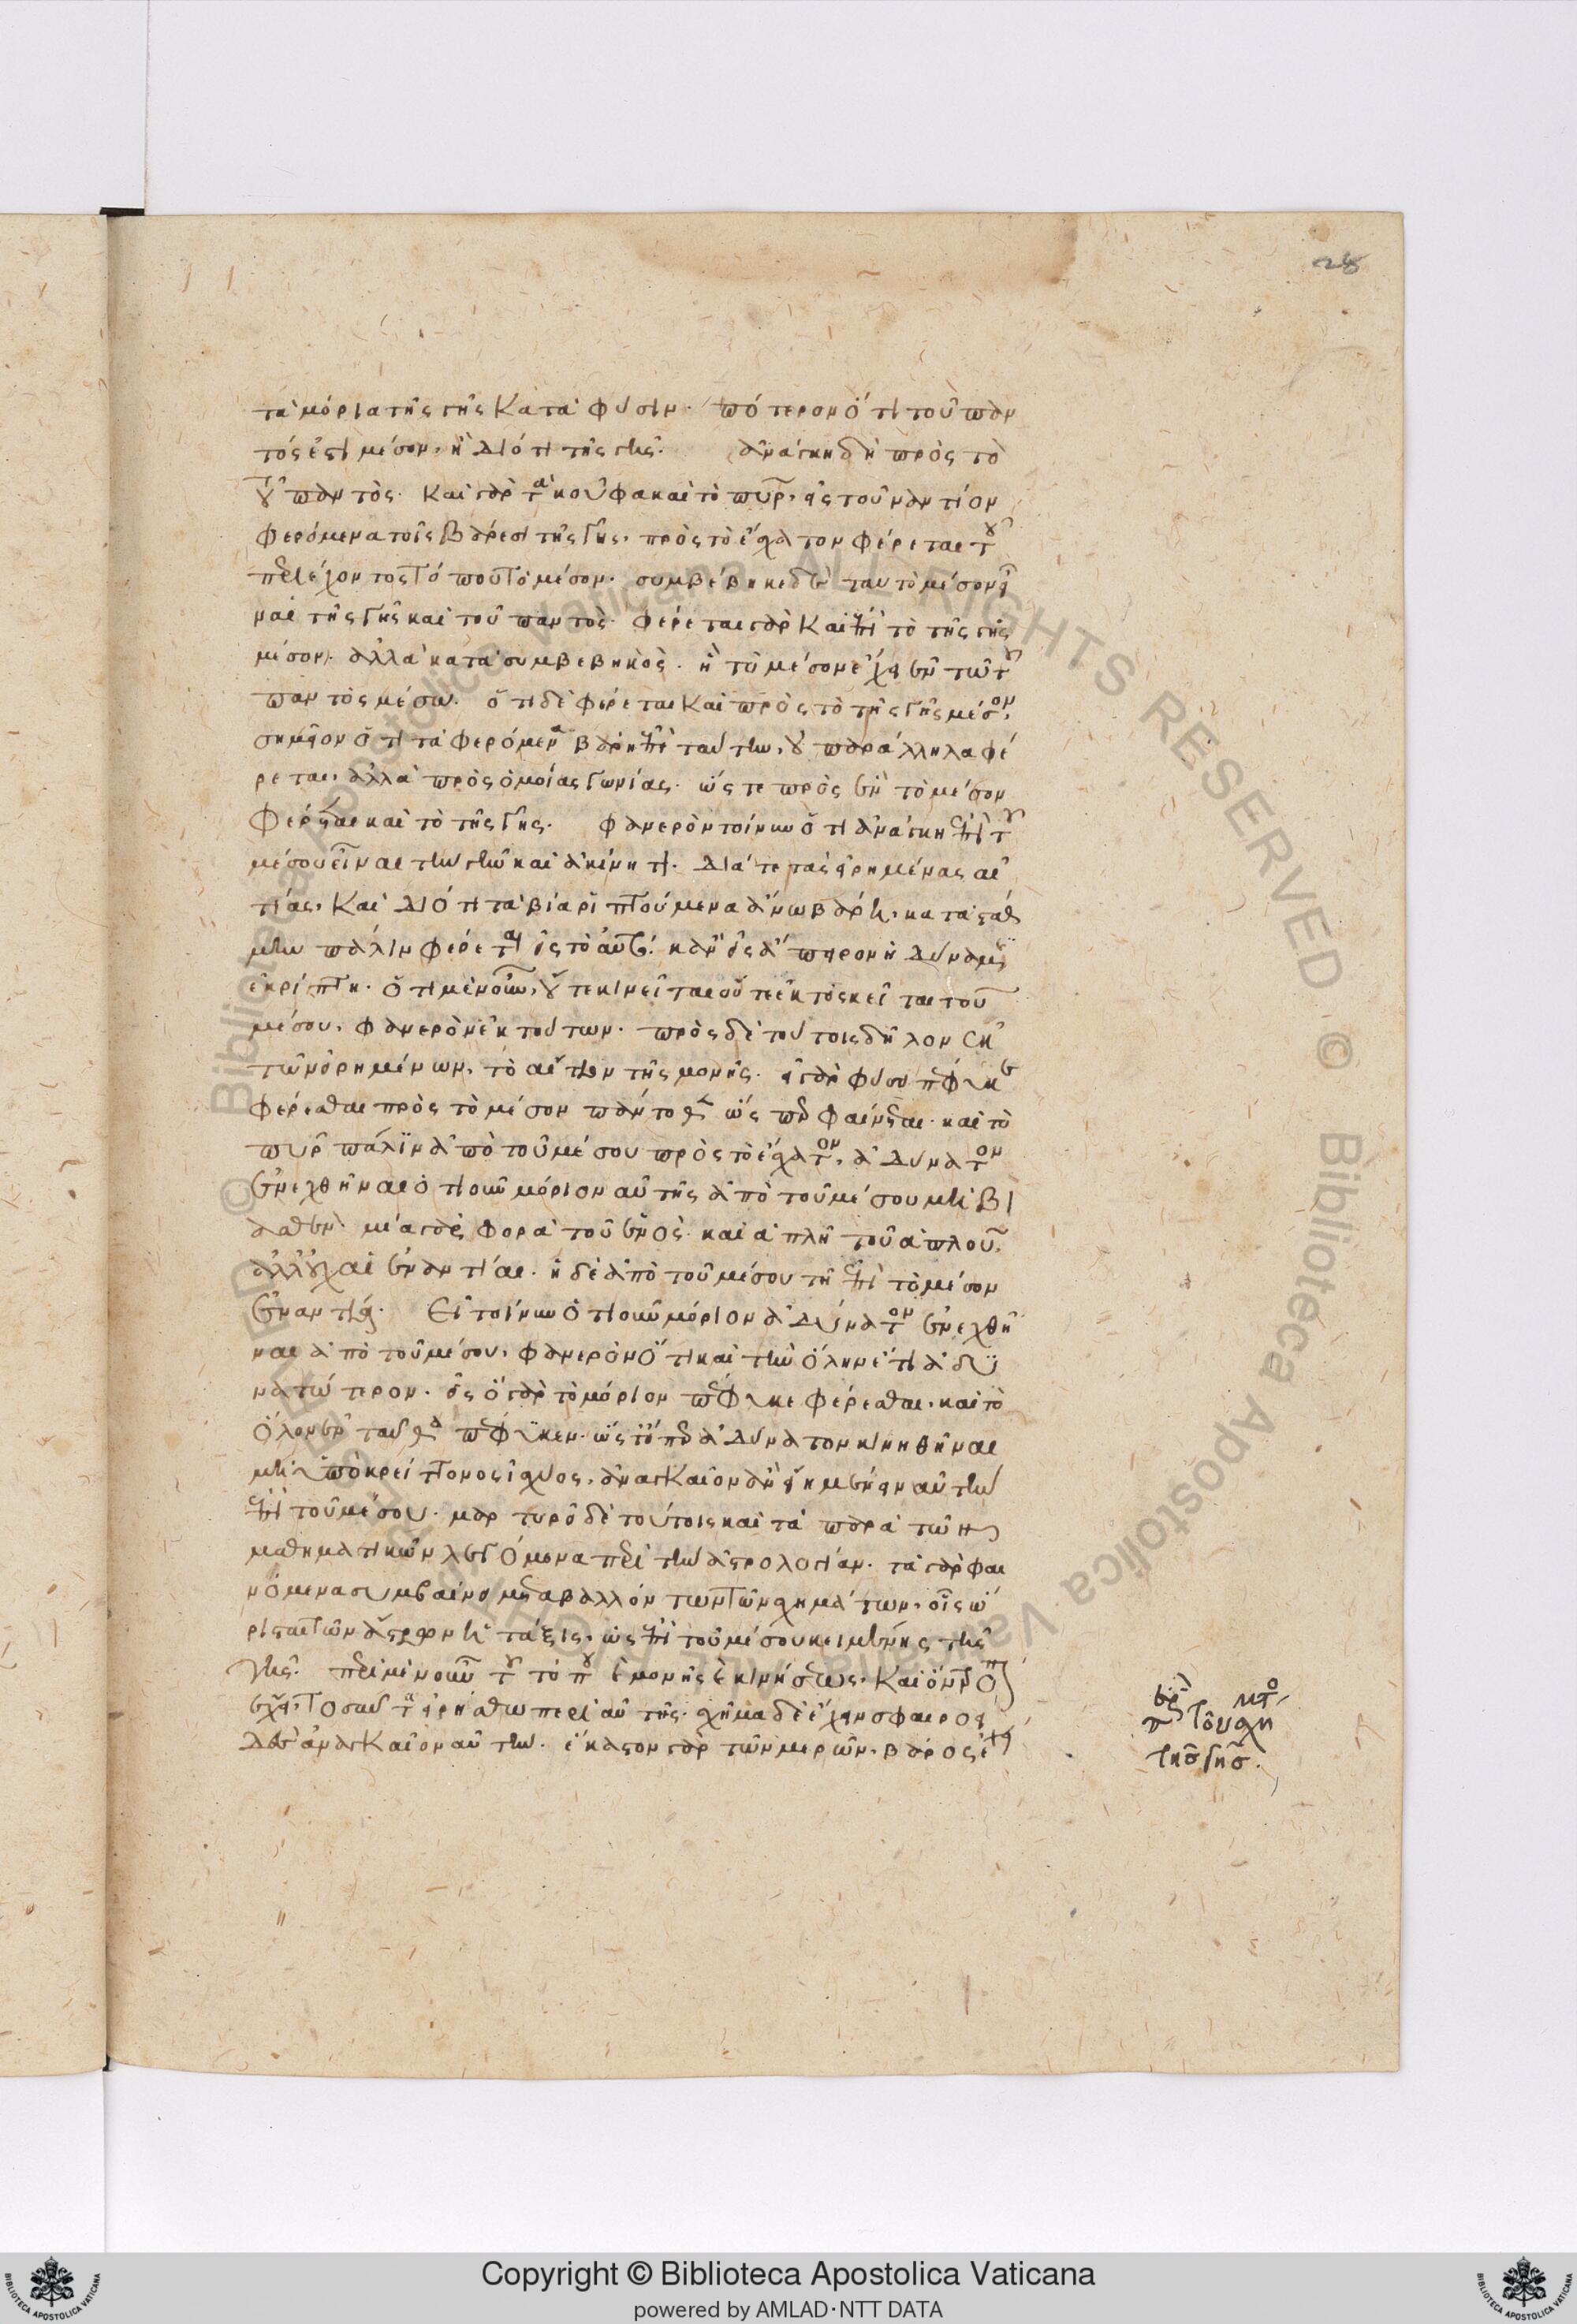 28
τὰ μόρια τῆς γῆς κατὰ φύσιν. πότερον ὅτι τοῦ παν
τός ἐστι μέσον, ἢ διότι τῆς γῆς. ἀνάγκη δὴ πρὸς τὸ
τοῦ παντὸς. καὶ γὰρ τὰ κοῦφα καὶ τὸ πῦρ, εἰς τοὐναντίον
φερόμενα τοῖς βάρεσι τῆς γῆς, πρὸς τὸ ἔσχατον φέρεται τοῦ
περιέχοντος τόπου τὸ μέσον. συμβέβηκε δὲ ταυτὸ μέσον εἶ
ναι τῆς γῆς καὶ τοῦ παντὸς. φέρεται γὰρ καὶ ἐπὶ τὸ τῆς γῆς
μέσον. ἀλλὰ κατὰ συμβεβηκὸς. ἢ τὸ μέσον ἔχει ἐν τῶ τοῦ
παντὸς μέσω. ὅτι δὲ φέρεται καὶ πρὸς τὸ τῆς γῆς μέσον,
σημεῖον ὅτι τὰ φερόμενα βάρη ἐπὶ ταύτην, οὐ παράλληλα φέ
ρεται, ἀλλὰ πρὸς ὁμοίας γωνίας. ὥστε πρὸς ἓν τὸ μέσον
φέρεσθαι καὶ τὸ τῆς γῆς. φανερὸν τοίνυν ὅτι ἀνάγκη ἐπὶ τοῦ
μέσου εἶναι τὴν γῆν καὶ ἀκίνητον. διά τε τὰς εἰρημένας αἰ
τίας, καὶ διότι τὰ βία ῥιπτούμενα ἄνω βάρη, κατὰ στάθ
μην πάλιν φέρεται εἰς τὸ αὐτό. κἂν εἰς ἄπειρον ἡ δύναμις
ἐκρίπτη. ὅτι μὲν οὖν, οὔτε κινεῖται οὔτε ἐκτὸς κεῖται τοῦ
μέσου, φανερὸν ἐκ τούτων. πρὸς δὲ τούτοις δῆλον ἐκ
τῶν εἰρημένων, τὸ αἴτιον τῆς μονῆς. εἰ γὰρ φύσει πέφυκε
φέρεσθαι πρὸς τὸ μέσον πάντοθεν ὥσπερ φαίνεται. καὶ τὸ
πῦρ πάλιν ἀπὸ τοῦ μέσου πρὸς τὸ ἔσχατον, ἀδύνατον
ἐνεχθῆναι ὁτιοῦν μόριον αὐτῆς ἀπὸ τοῦ μέσου μὴ βι
ασθὲν. μία γὰρ φορὰ τοῦ ἑνὸς. καὶ ἁπλῆ τοῦ ἁπλοῦ,
ἀλλ' οὐχ αἱ ἐναντίαι. ἡ δὲ ἀπὸ τοῦ μέσου τῆ ἐπὶ τὸ μέσον
ἐναντία. Εἰ τοίνυν ὁτιοῦν μόριον ἀδύνατον ἐνεχθῆ
ναι ἀπὸ τοῦ μέσου, φανερὸν ὅτι καὶ τὴν ὅλην ἔτι ἀδυ
νατώτερον. εἰς ὃ γὰρ τὸ μόριον πέφυκε φέρεσθαι, καὶ τὸ
ὅλον ἐνταῦθα πέφυκεν. ὥστ' εἴπερ ἀδύνατον κινηθῆναι
μὴ ὑπὸ κρείττονος ἰσχύος, ἀναγκαῖον ἂν εἴη μένειν αὐτὴν
ἐπὶ τοῦ μέσου. μαρτυρεῖ δὲ τούτοις καὶ τὰ παρὰ τῶν
μαθηματικῶν λεγόμενα περὶ τὴν ἀστρολογίαν. τὰ γὰρ φαι
νόμενα συμβαίνει μεταβαλλόντων τῶν σχημάτων, οἷς ὥ
ρισται τῶν ἄστρων ἡ τάξις, ὡς ἐπὶ τοῦ μέσου κειμένης τῆς
γῆς. περὶ μὲν οὖν τοῦ τόπου καὶ μονῆς καὶ κινήσεως, καὶ ὃν τρόπον
ἔχει, τοσαῦτα εἰρήσθω περὶ αὐτῆς. σχῆμα δὲ ἔχειν σφαιροει
δὲς ἀναγκαῖον αὐτὴν. ἕκαστον γὰρ τῶν μερῶν, βάρος ἔχει
περὶ τοῦ σχή
τῆς γῆς.
Copyright © Biblioteca Apostolica Vaticana
powered by AMLAD·NTT DATA